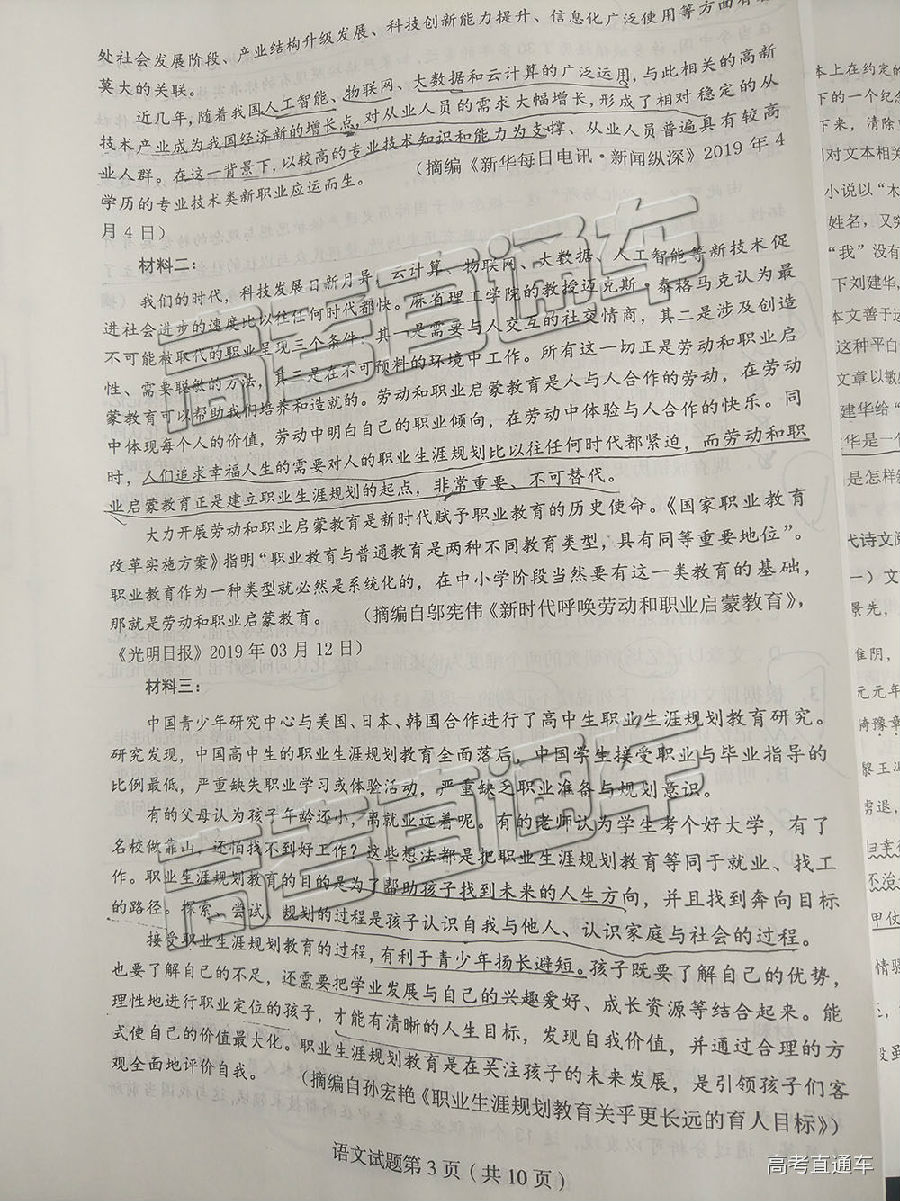 处社会发展阶段、产业结构升级发展、科技创新能力提升、信息化广泛使用等方面有
莫大的关联。
近几年，随着我国人工智能、物联网、大数据和云计算的广泛运用，与此相关的高新
技术产业成为我国经济新的增长点，对从业人员的需求大幅增长，形成了相对稳定的从
业人群。在这一背景下，以较高的专业技术知识和能力为支撑、从业人员普遍具有较高
学历的专业技术类新职业应运而生。 （摘编《新华每日电讯·新闻纵深》2019 年 4
月 4 日）
材料二：
我们的时代，科技发展日新月异，云计算、物联网、大数据、人工智能等新技术促
进社会进步的速度比以往任何时代都快。麻省理工学院的教授迈克斯·泰格马克认为最
不可能被取代的职业呈现三个条件：其一是需要与人交互的社交情商，其二是涉及创造
性、需要聪敏的方法，其三是在不可预料的环境中工作。所有这一切正是劳动和职业启
蒙教育可以帮助我们培养和造就的。劳动和职业启蒙教育是人与人合作的劳动，在劳动
中体现每个人的价值，劳动中明白自己的职业倾向，在劳动中体验与人合作的快乐。同
时，人们追求幸福人生的需要对人的职业生涯规划比以往任何时代都紧迫，而劳动和职
业启蒙教育正是建立职业生涯规划的起点，非常重要、不可替代。
大力开展劳动和职业启蒙教育是新时代赋予职业教育的历史使命。《国家职业教育
改革实施方案》指明“职业教育与普通教育是两种不同教育类型，具有同等重要地位”。
职业教育作为一种类型就必然是系统化的，在中小学阶段当然要有这一类教育的基础，
那就是劳动和职业启蒙教育。 （摘编自邬宪伟《新时代呼唤劳动和职业启蒙教育》，
《光明日报》2019 年 03 月 12 日）
材料三：
中国青少年研究中心与美国、日本、韩国合作进行了高中生职业生涯规划教育研究。
研究发现，中国高中生的职业生涯规划教育全面落后，中国学生接受职业与毕业指导的
比例最低，严重缺失职业学习或体验活动，严重缺乏职业准备与规划意识。
有的父母认为孩子年龄还小，离就业远着呢。有的老师认为学生考个好大学，有了
名校做靠山，还怕找不到好工作？这些想法都是把职业生涯规划教育等同于就业、找工
作。职业生涯规划教育的目的是为了帮助孩子找到未来的人生方向，并且找到奔向目标
的路径。探索、尝试、规划的过程是孩子认识自我与他人、认识家庭与社会的过程。
接受职业生涯规划教育的过程，有利于青少年扬长避短。孩子既要了解自己的优势，
也要了解自己的不足，还需要把学业发展与自己的兴趣爱好、成长资源等结合起来。能
理性地进行职业定位的孩子，才能有清晰的人生目标，发现自我价值，并通过合理的方
式使自己的价值最大化。职业生涯规划教育是在关注孩子的未来发展，是引领孩子们客
观全面地评价自我。 （摘编自孙宏艳《职业生涯规划教育关乎更长远的育人目标》）
语文试题第 3 页（共 10 页）
本上在约定的
下的一个纪念
下来，清除
对文本相关
小说以“木
姓名，又
“我”没有
下刘建华，
本文善于
这种平白
文章以
建华给“
华是一个
是怎样
代诗文阅
一）文
景先，
淮阴，
元元年
黎王
不治
甲仗
高考直通车
高考直通车
高考直通车